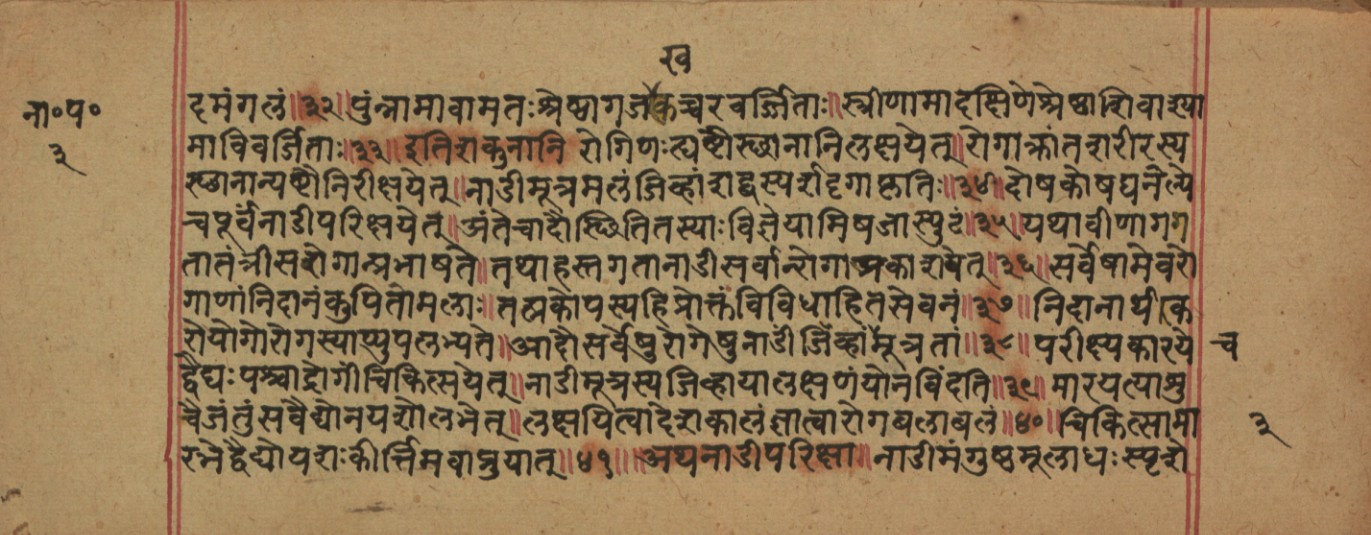 ख
ना॰प॰
३
दमंगलं॥३२॥पुंन्नामावामतःश्रेष्ठागजोकच्चरवर्जिताः॥स्त्रीणामादक्षिणेश्रेष्ठाशिवाश्या
माविवर्जिताः॥३३॥इतिशकुनानि रोगिणःह्यष्टौस्छानानिलक्षयेत्॥रोगाक्रांतशरीरस्य
स्छानान्यष्टौनिरीक्षयेत्॥नाडीमूत्रमलंजिव्हांशद्वस्पर्शदृगाकृतिः॥३४॥दोषकोषघनेल्पे
चपूर्वंनाडीपरिक्षयेत्॥अंतेचादौस्छितितस्याःविज्ञेयाभिषजास्फुटं॥३५॥यथावीणागग
तातंत्रीसरोगान्प्रभाषते॥तथाहस्तगतानाडीसर्वान्रोगान्प्रकाशयेत्॥३६॥सर्वेषामेवरो
गाणांनिदानंकुपितामलाः॥तत्प्रकोपस्यहिप्रोक्तंविविधाहितसेवनं॥३७॥निदानार्थीक
रोयोगोरोगस्याप्युपलभ्यते॥आदौसर्वेषुरोगेषुनाडीजिंव्हांमूत्रतां॥३८॥परीक्ष्यकारये
च
द्वैद्यःपश्चाद्रोगीचिकित्सयेत्॥नाडीमूत्रस्यजिव्हायालक्षणंयोनविंदति॥३९॥मारयत्याशु
वैजंतुंसवैद्योनयशोलभेत्॥लक्षयित्वादेशकालंज्ञात्वारोगबलाबलं॥४०॥चिकित्सामा
३
रभेद्वैद्योयशःकीर्त्तिमवाप्नुयात्॥४१॥॥अथनाडीपरिक्षा॥नाडीमंगुष्ठमूलाधःस्पृशे